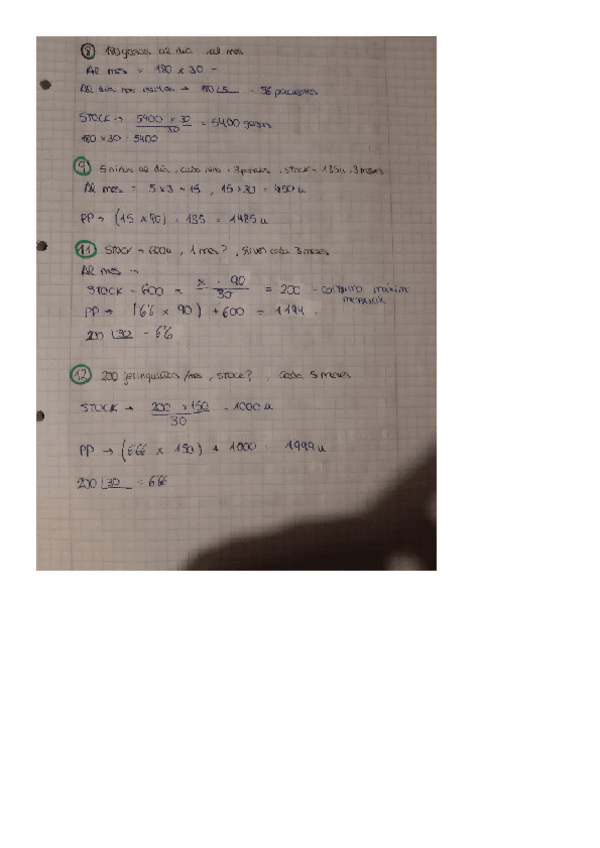 8 180 gasas al día al mes
AL mes = 180 x 30 =
AL día nos → 180 5 = 36 pacientes
STOCK → 5400 x 30 / 30 = 5400 gasas
180 x 30 = 5400
9 5 niños al día, cada = 3, stock = 135u, 3 meses
AL mes = 5 x 3 = 15, 15 x 30 = 450 u
PP → (15 x 90) + 135 = 1485 u
11 STOCK → 600u, 1 mes?, cada 3 meses
AL mes →
STOCK - 600 = x · 90 / 30 = 200 - consumo
PP → (6'6 x 90) + 600 = 1194.
200 30 = 6'6
12 200 jeringuillas /mes, STOCK?, cada 5 meses
STOCK → 200 x 150 / 30 = 1000 u
PP → (6'66 x 150) + 1000 = 1999 u
200 30 = 6'66